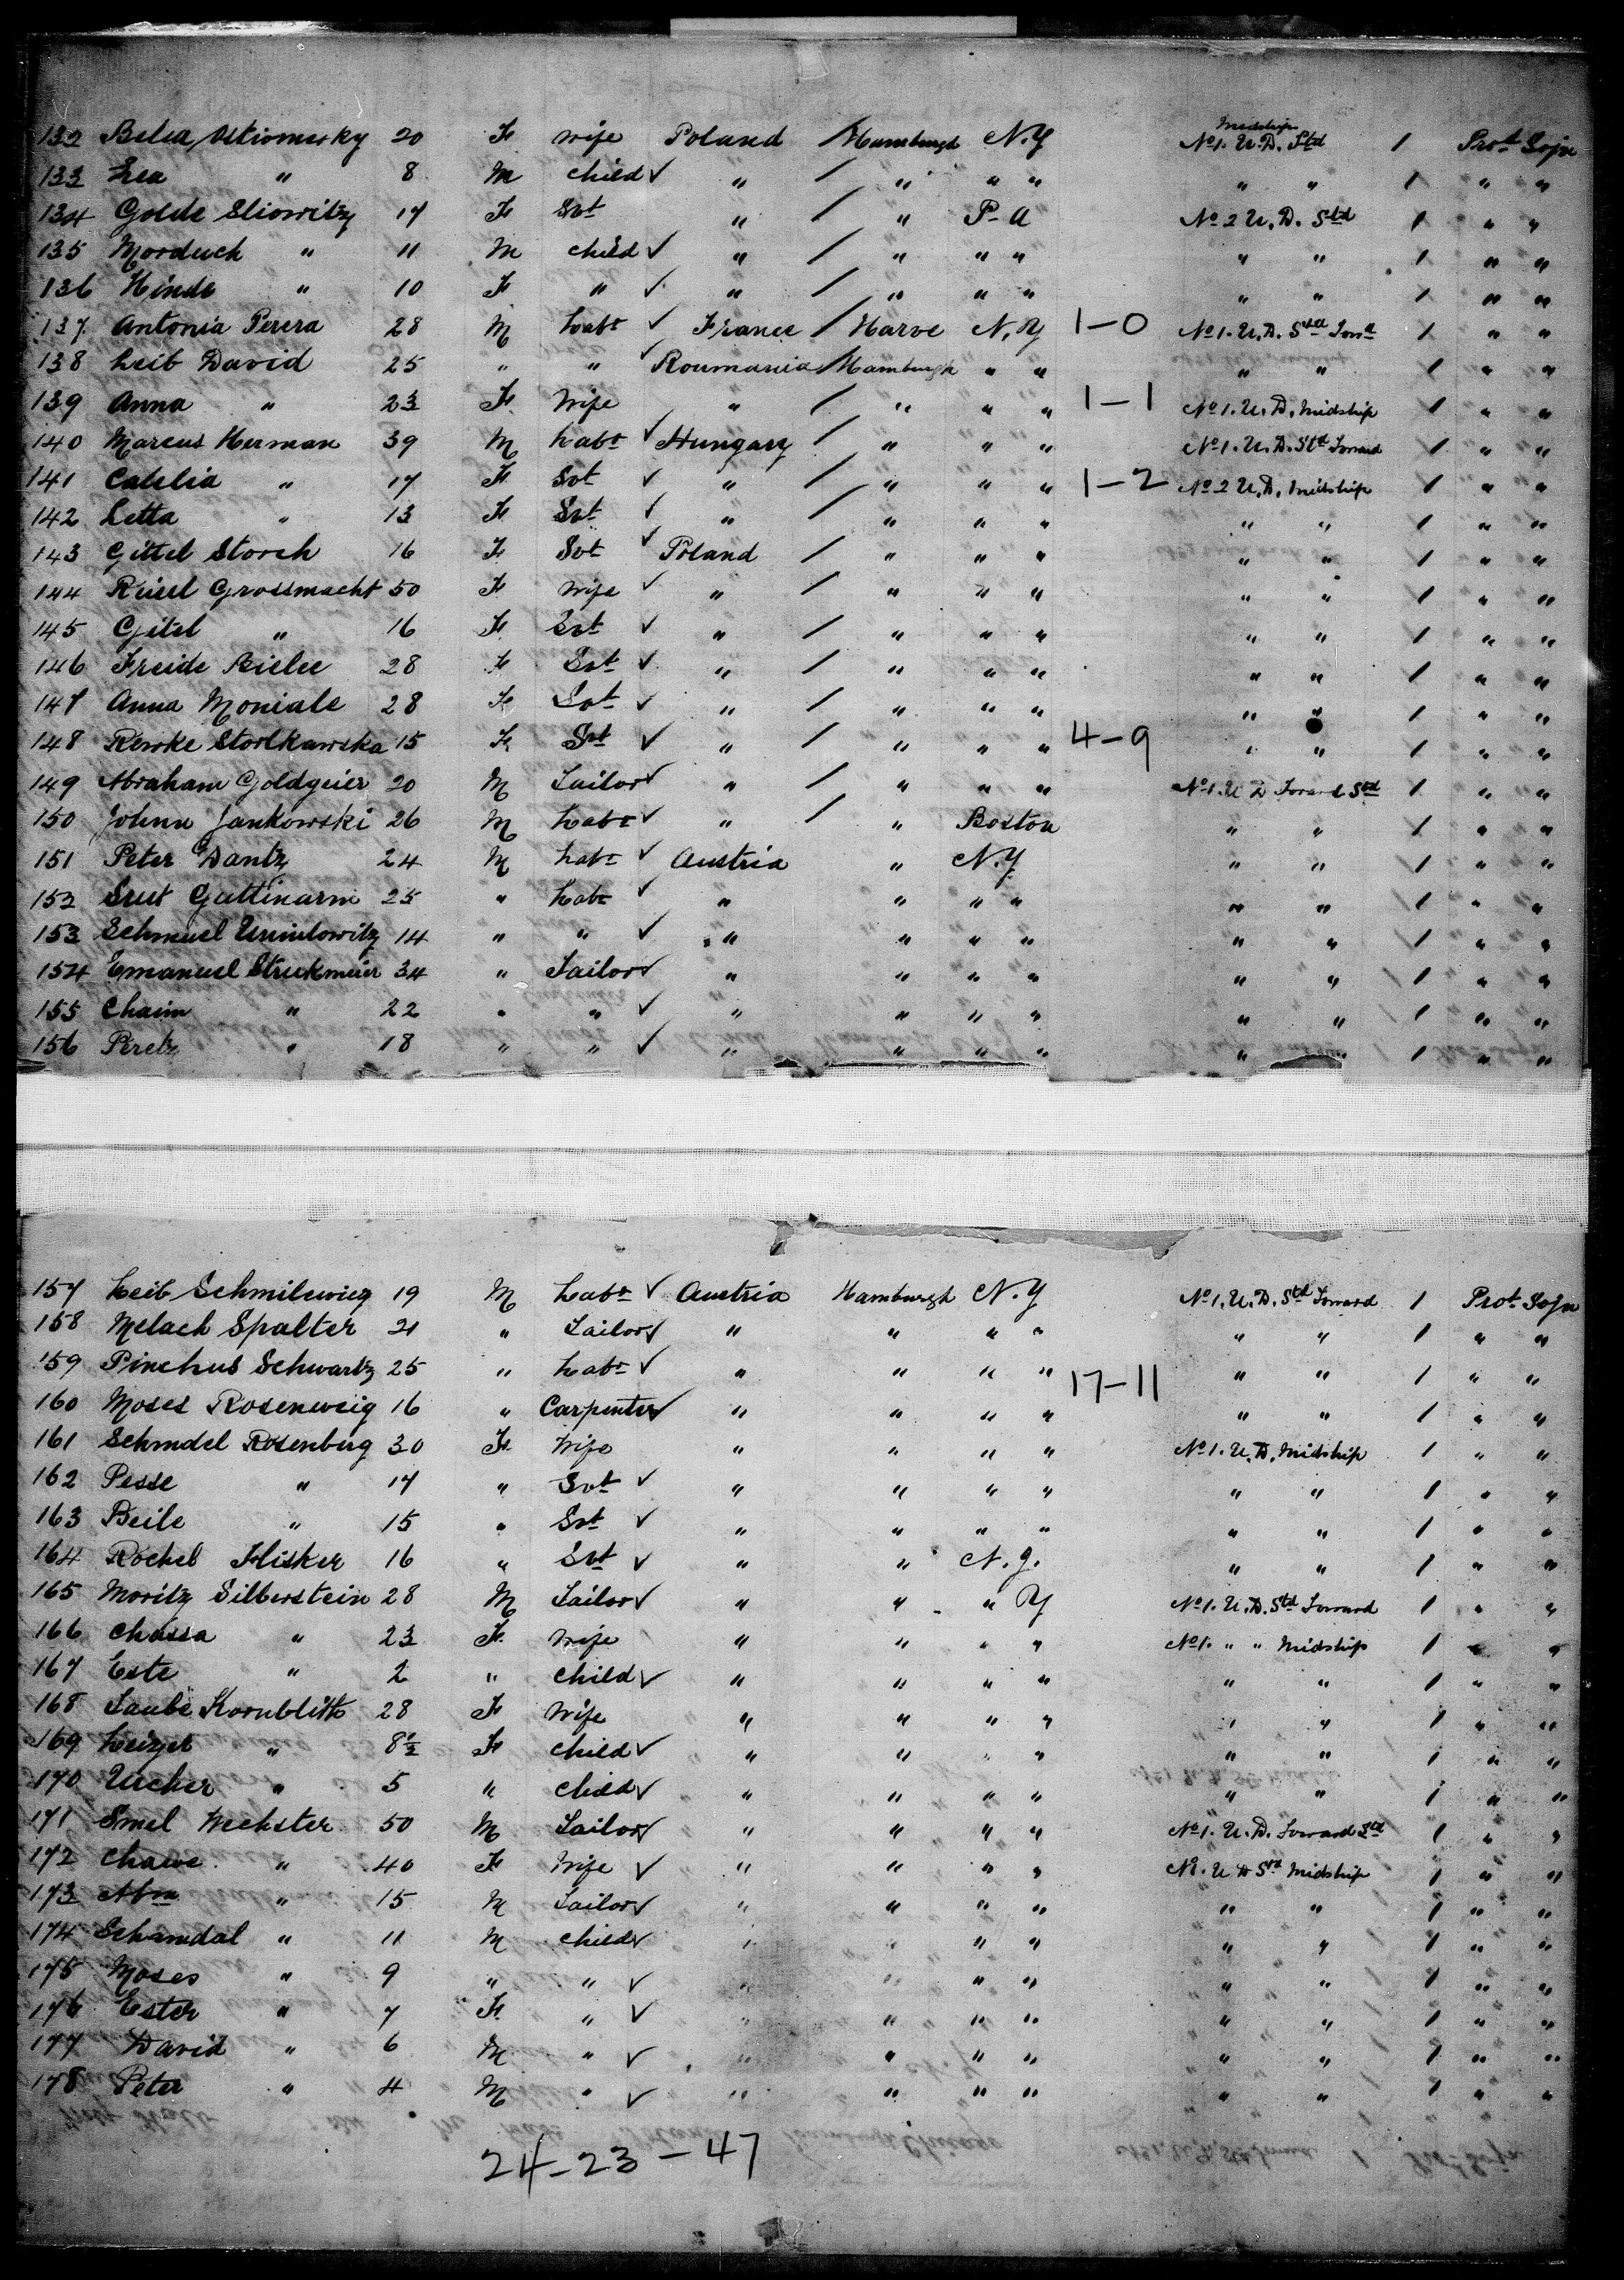 Midship
132 Belea Ostiomersky 20 F Wife Poland / Hamburgh N.Y No 1. U.D. Std 1 Prot Sojn
133 Lea " 8 M Child ✓ " / " " " " " 1 " "
134 Golde Sliowitz 17 F Svt " / " P-a No 2 U.D. Std 1 " "
135 Morduch " 11 M Child ✓ " / " " " " " 1 " "
136 Hinde " 10 F " ✓ " / " " " " " 1 " "
137 Antonia Perera 28 M Labr ✓ France / Harve N.Y 1-0 No 1. U.D. Std Forrd 1 " "
138 Leib David 25 " " ✓ Roumania / Hamburgh " " " " 1 " "
139 Anna " 23 F Wife " / " " " 1-1 No 1. U.D. Midship 1 " "
140 Marcus Herman 39 M Labr ✓ Hungary / " " " No 1. U.D. Std Forward 1 " "
141 Calilia " 17 F Svt ✓ " / " " " 1-2 No 2 U.D. Midship 1 " "
142 Letta " 13 F Svt ✓ " / " " " " " 1 " "
143 Gittel Storch 16 F Svt ✓ Poland / " " " " " 1 " "
144 Reisel Grossmacht 50 F Wife ✓ " / " " " " " 1 " "
145 Gitel " 16 F Svt ✓ " / " " " " " 1 " "
146 Freide Bielee 28 F Svt ✓ " / " " " " " 1 " "
147 Anna Moniale 28 F Svt ✓ " / " " " " " 1 " "
148 Rewke Storlkawska 15 F Svt ✓ " / " " " 4-9 " " 1 " "
149 Abraham Goldgeier 20 M Tailor ✓ " / " " " No 1. U D Forard Std 1 " "
150 Johnn Jankowski 26 M Labr ✓ " / " Boston " " 1 " "
151 Peter Dantz 24 M Labr ✓ Austria " N.Y " " 1 " "
152 Srul Guttinarm 25 " Labr ✓ " " " " " " 1 " "
153 Schmuel Unintowitz 14 " " ✓ " " " " " " 1 " "
154 Emanuel Struckmeier 34 " Tailor ✓ " " " " " " 1 " "
155 Chaim " 22 " " ✓ " " " " " " 1 " "
156 Peretz " 18 " " ✓ " " " " " " 1 " "
157 Leib Schmilewieg 19 M Labr ✓ Austria Hamburgh N.Y No 1. U.D. Std Forward 1 Prot Sojn
158 Melach Spalter 21 " Tailor ✓ " " " " " " 1 " "
159 Pinchus Schwartz 25 " Labr ✓ " " " " 17-11 " " 1 " "
160 Moses Rosenweig 16 " Carpenter ✓ " " " " " " 1 " "
161 Schmdel Rosenberg 30 F Wife " " " " No 1. U.D. Midship 1 " "
162 Pesse " 17 " Svt ✓ " " " " " " 1 " "
163 Beile " 15 " Svt ✓ " " " " " " 1 " "
164 Rochel Flisker 16 " Svt ✓ " " N.J. " " 1 " "
165 Moritz Silberstein 28 M Tailor ✓ " " " Y No 1. U.D. Std Forward 1 " "
166 Chassa " 23 F Wife " " " " No 1. " " Midship 1 " "
167 Este " 2 " Child ✓ " " " " " " 1 " "
168 Taube Kornblith 28 F Wife " " " " " " 1 " "
169 Leizer " 8½ F Child ✓ " " " " " " 1 " "
170 Uscher " 5 " Child ✓ " " " " " " 1 " "
171 Smel Wechster 50 M Tailor ✓ " " " " No 1. U.D. Forward Std 1 " "
172 Chawe " 40 F Wife ✓ " " " " No 1. U D Std Midship 1 " "
173 Abm " 15 M Tailor ✓ " " " " " " 1 " "
174 Schamdal " 11 M Child ✓ " " " " " 1 " "
175 Moses " 9 " " ✓ " " " " " " 1 " "
176 Ester " 7 F " ✓ " " " " " " 1 " "
177 David " 6 M " ✓ " " " " " " 1 " "
178 Peter " 4 M " ✓ " " " " " " 1 " "
24-23-47